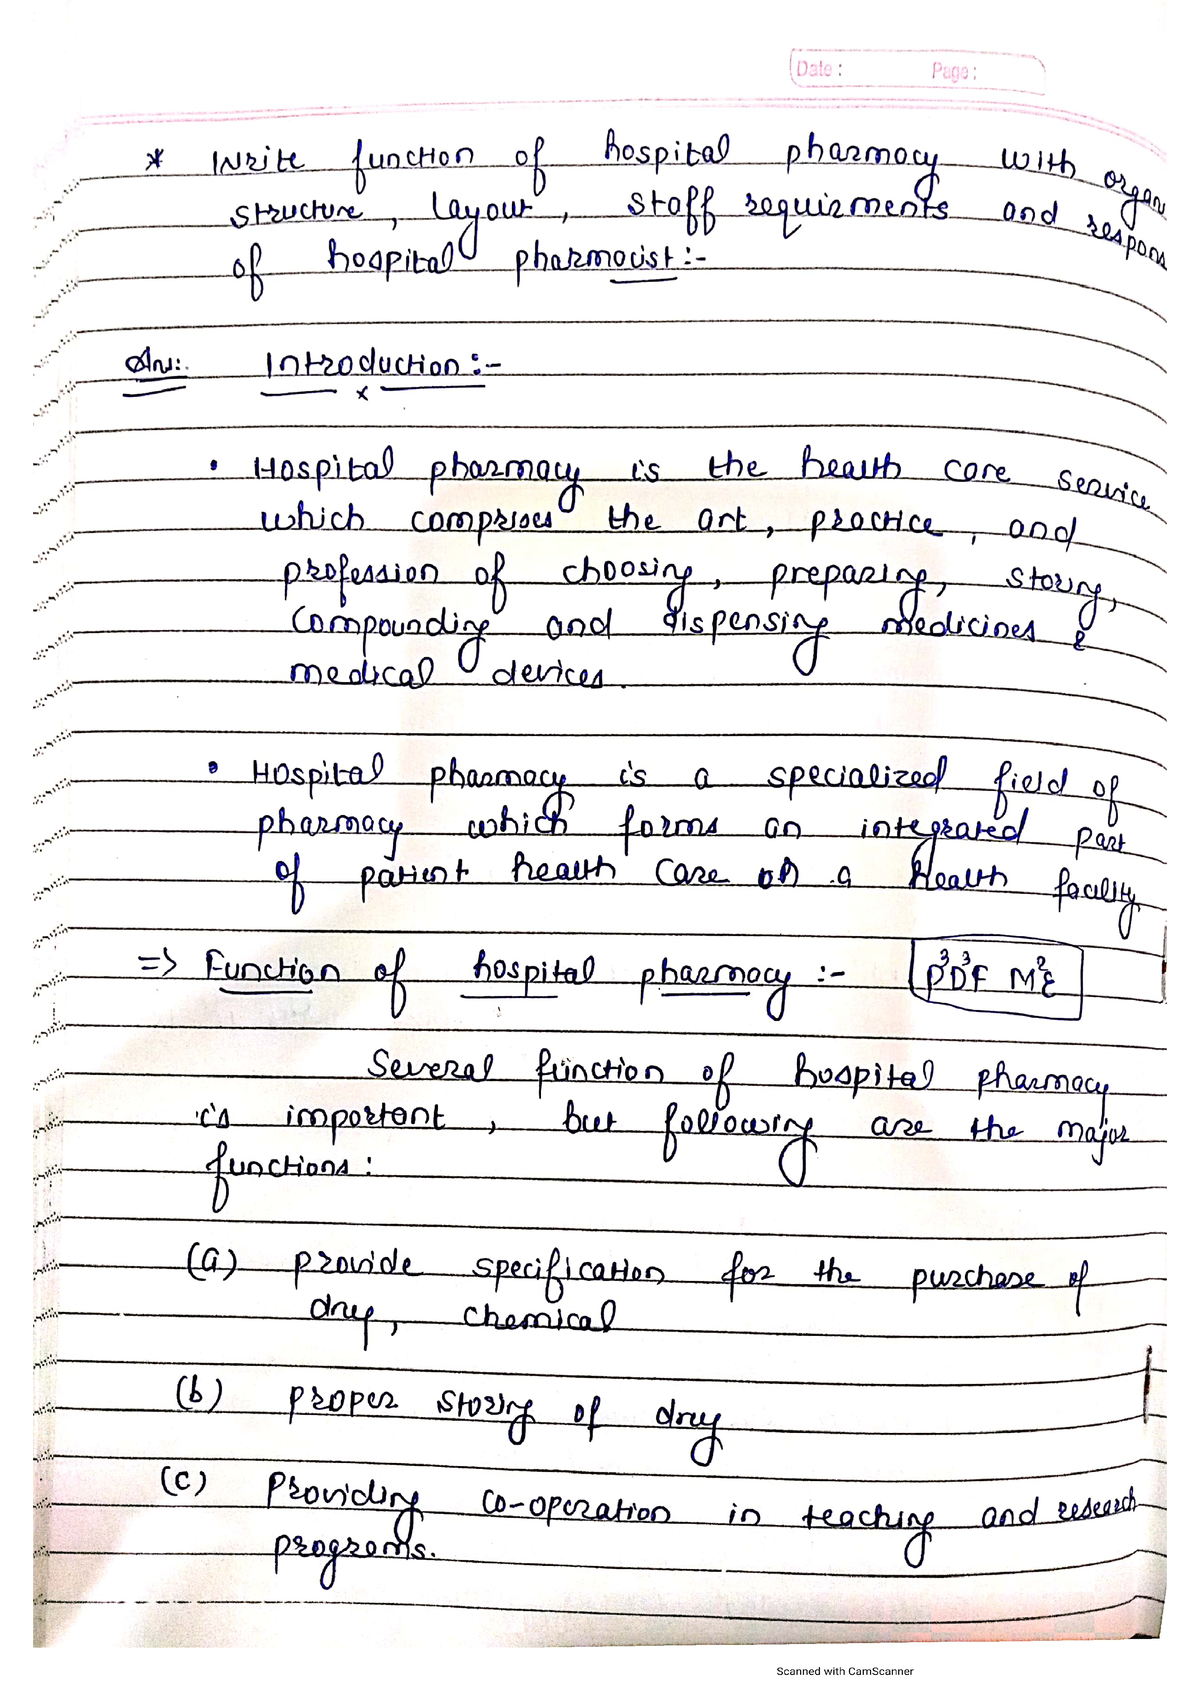 Date : Page :
* Write function of hospital pharmacy with organ
structure, layout, staff requirments and respons
of hospital pharmacist :-
Ans:. Introduction :-
x
• Hospital pharmacy is the health care service
which comprises the art, practice, and
profession of choosing, preparing, storing,
compounding and dispensing medicines &
medical devices.
• Hospital pharmacy is a specialized field of
pharmacy which forms an integrated part
of patient health care on a health facility
=> Function of hospital pharmacy :- P³D³F M²E
Several function of hospital pharmacy
is important, but following are the major
functions :
(a) provide specification for the purchase of
drug, chemical
(b) proper storing of drug
(c) Providing co-operation in teaching and research
programs.
Scanned with CamScanner